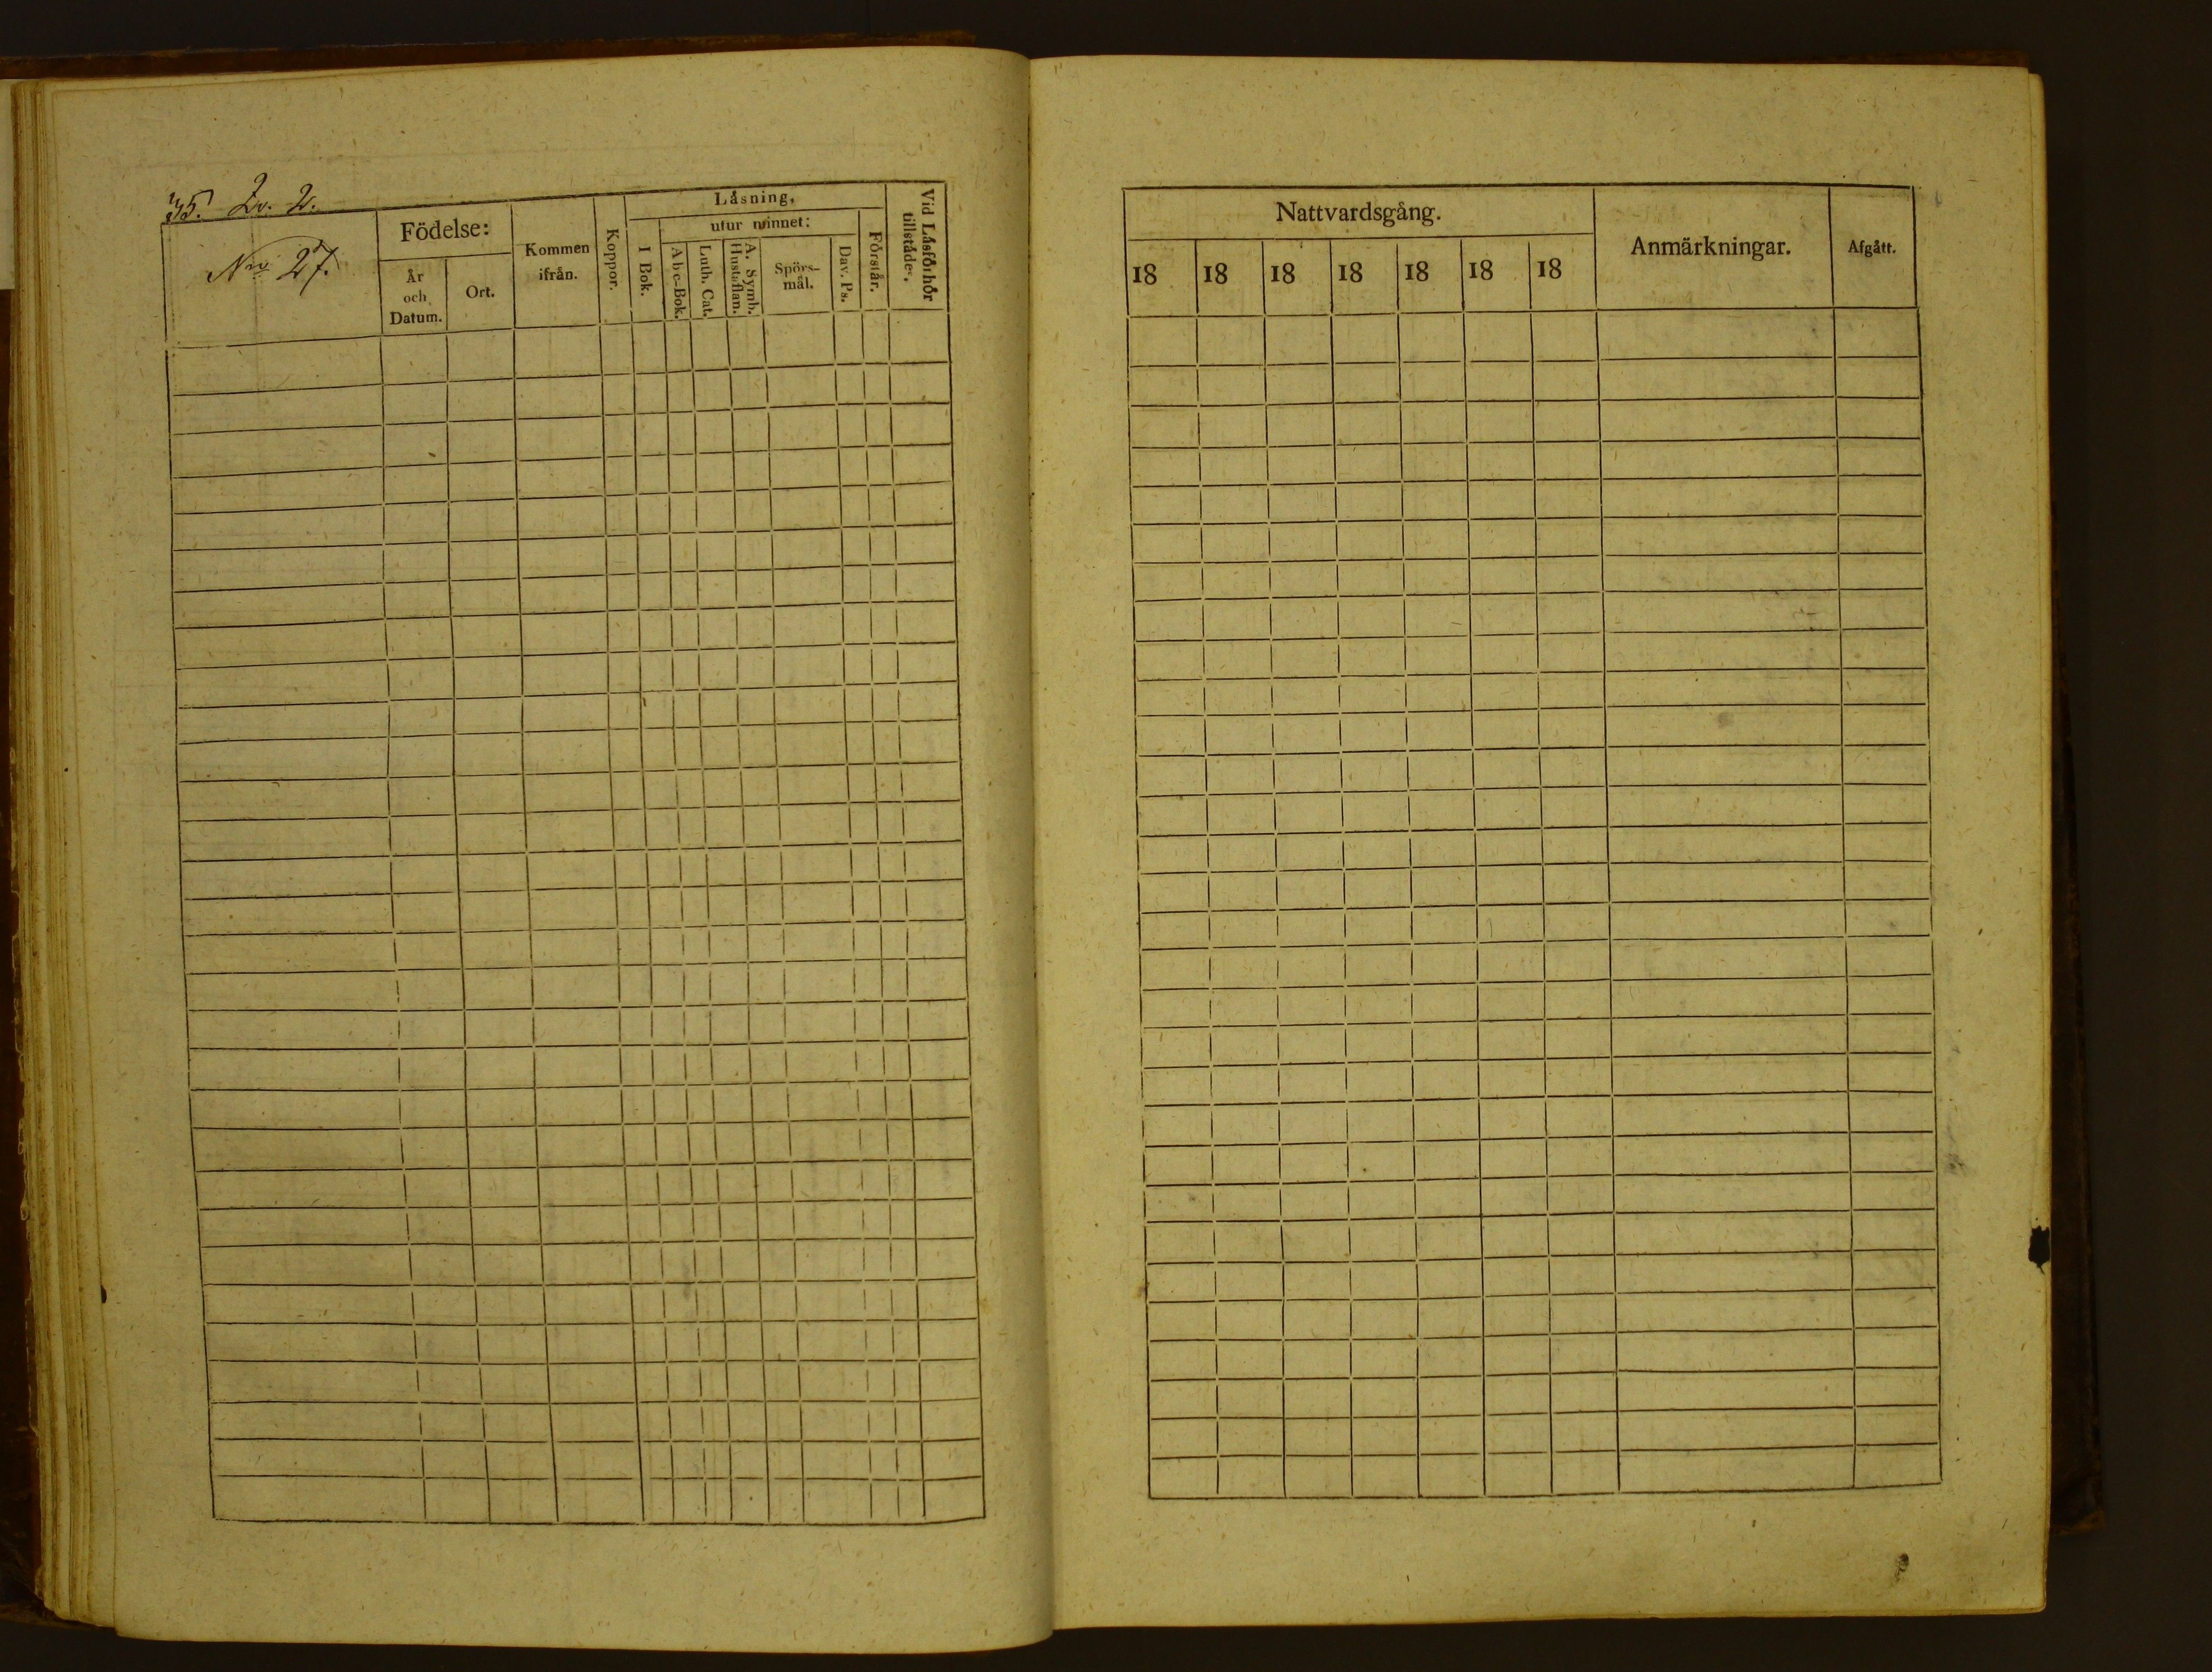 35. Qv. 2.
Nro 27.
Födelse:
År
och
Datum.
Ort.
Kommen
ifrån.
Koppor.
Låsning,
I Bok.
utur minnet:
Abc-Bok.
Luth. Cat.
A. Symb.
Hustaflan.
Spörs-
mål.
Dav. Ps.
Förstår.
Vid Låsförhör
tillstädes.
Nattvardsgång.
18 18 18 18 18 18 18
Anmärkningar.
Afgått.